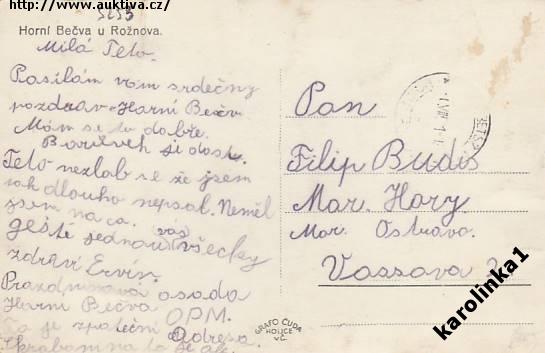 ( http://www.auktiva.cz/ )
Horní Bečva u Rožnova.
Milá Teto.
Posílám vám srdečný
pozdrav z Harní Bečv
Mám se tu dobře.
si dost.
Teto nezlob se že jsem
tak dlouho nepsal. Neměl
jsem na co.
ještě jednou vás všecky
zdraví Ervín.
Prazdninová osada
Harní Bečva OPM.
To je zpáteční Adresa.
Pan
Filip Budis
Mar. Hory
Mar. Ostrava.
GRAFO ČUDA
HOLICE
V.Č.
karolinka1